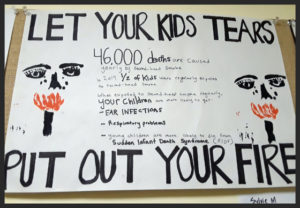 LET YOUR KIDS TEARS
46,000 deaths are caused
yearly by Second-hand Smoke
1/2 of Kids were regularly exposed
to Second-hand Smoke
When exposed to Second-hand Smoke regularly,
your children are more likely to get:
- EAR INFECTIONS
- Respiratory problems
- young children are more likely to die from
Sudden Infant Death Syndrome (SIDS)
PUT OUT YOUR FIRE
Sylvie M